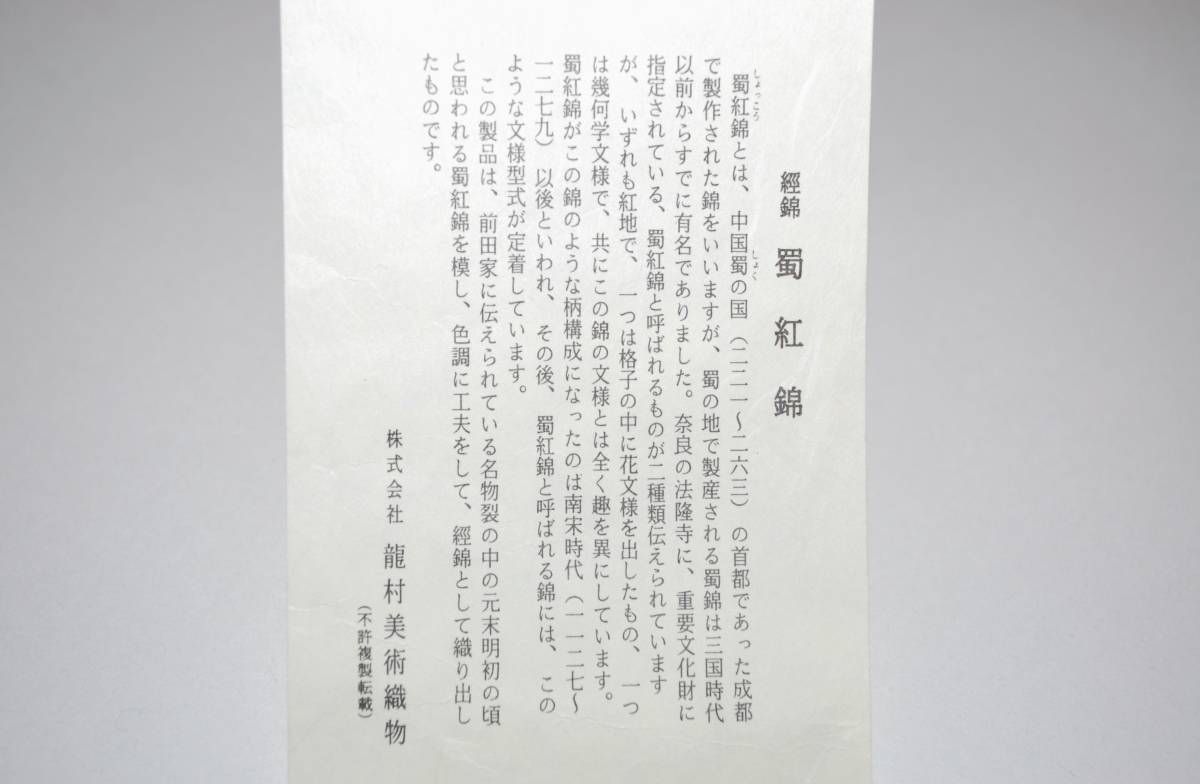 經錦 蜀紅錦
蜀紅錦とは、中国蜀の国（二二一〜二六三）の首都であった成都
しょっころ
しょく
で製作された錦をいいますが、蜀の地で製産される蜀錦は三国時代
以前からすでに有名でありました。奈良の法隆寺に、重要文化財に
指定されている、蜀紅錦と呼ばれるものが二種類伝えられています
が、いずれも紅地で、一つは格子の中に花文様を出したもの、一つ
は幾何学文様で、共にこの錦の文様とは全く趣を異にしています。
蜀紅錦がこの錦のような柄構成になったのは南宋時代（一一二七〜
一二七九）以後といわれ、その後、蜀紅錦と呼ばれる錦には、この
ような文様型式が定着しています。
この製品は、前田家に伝えられている名物裂の中の元末明初の頃
と思われる蜀紅錦を模し、色調に工夫をして、經錦として織り出し
たものです。
株式会社 龍村美術織物
（不許複製転載）